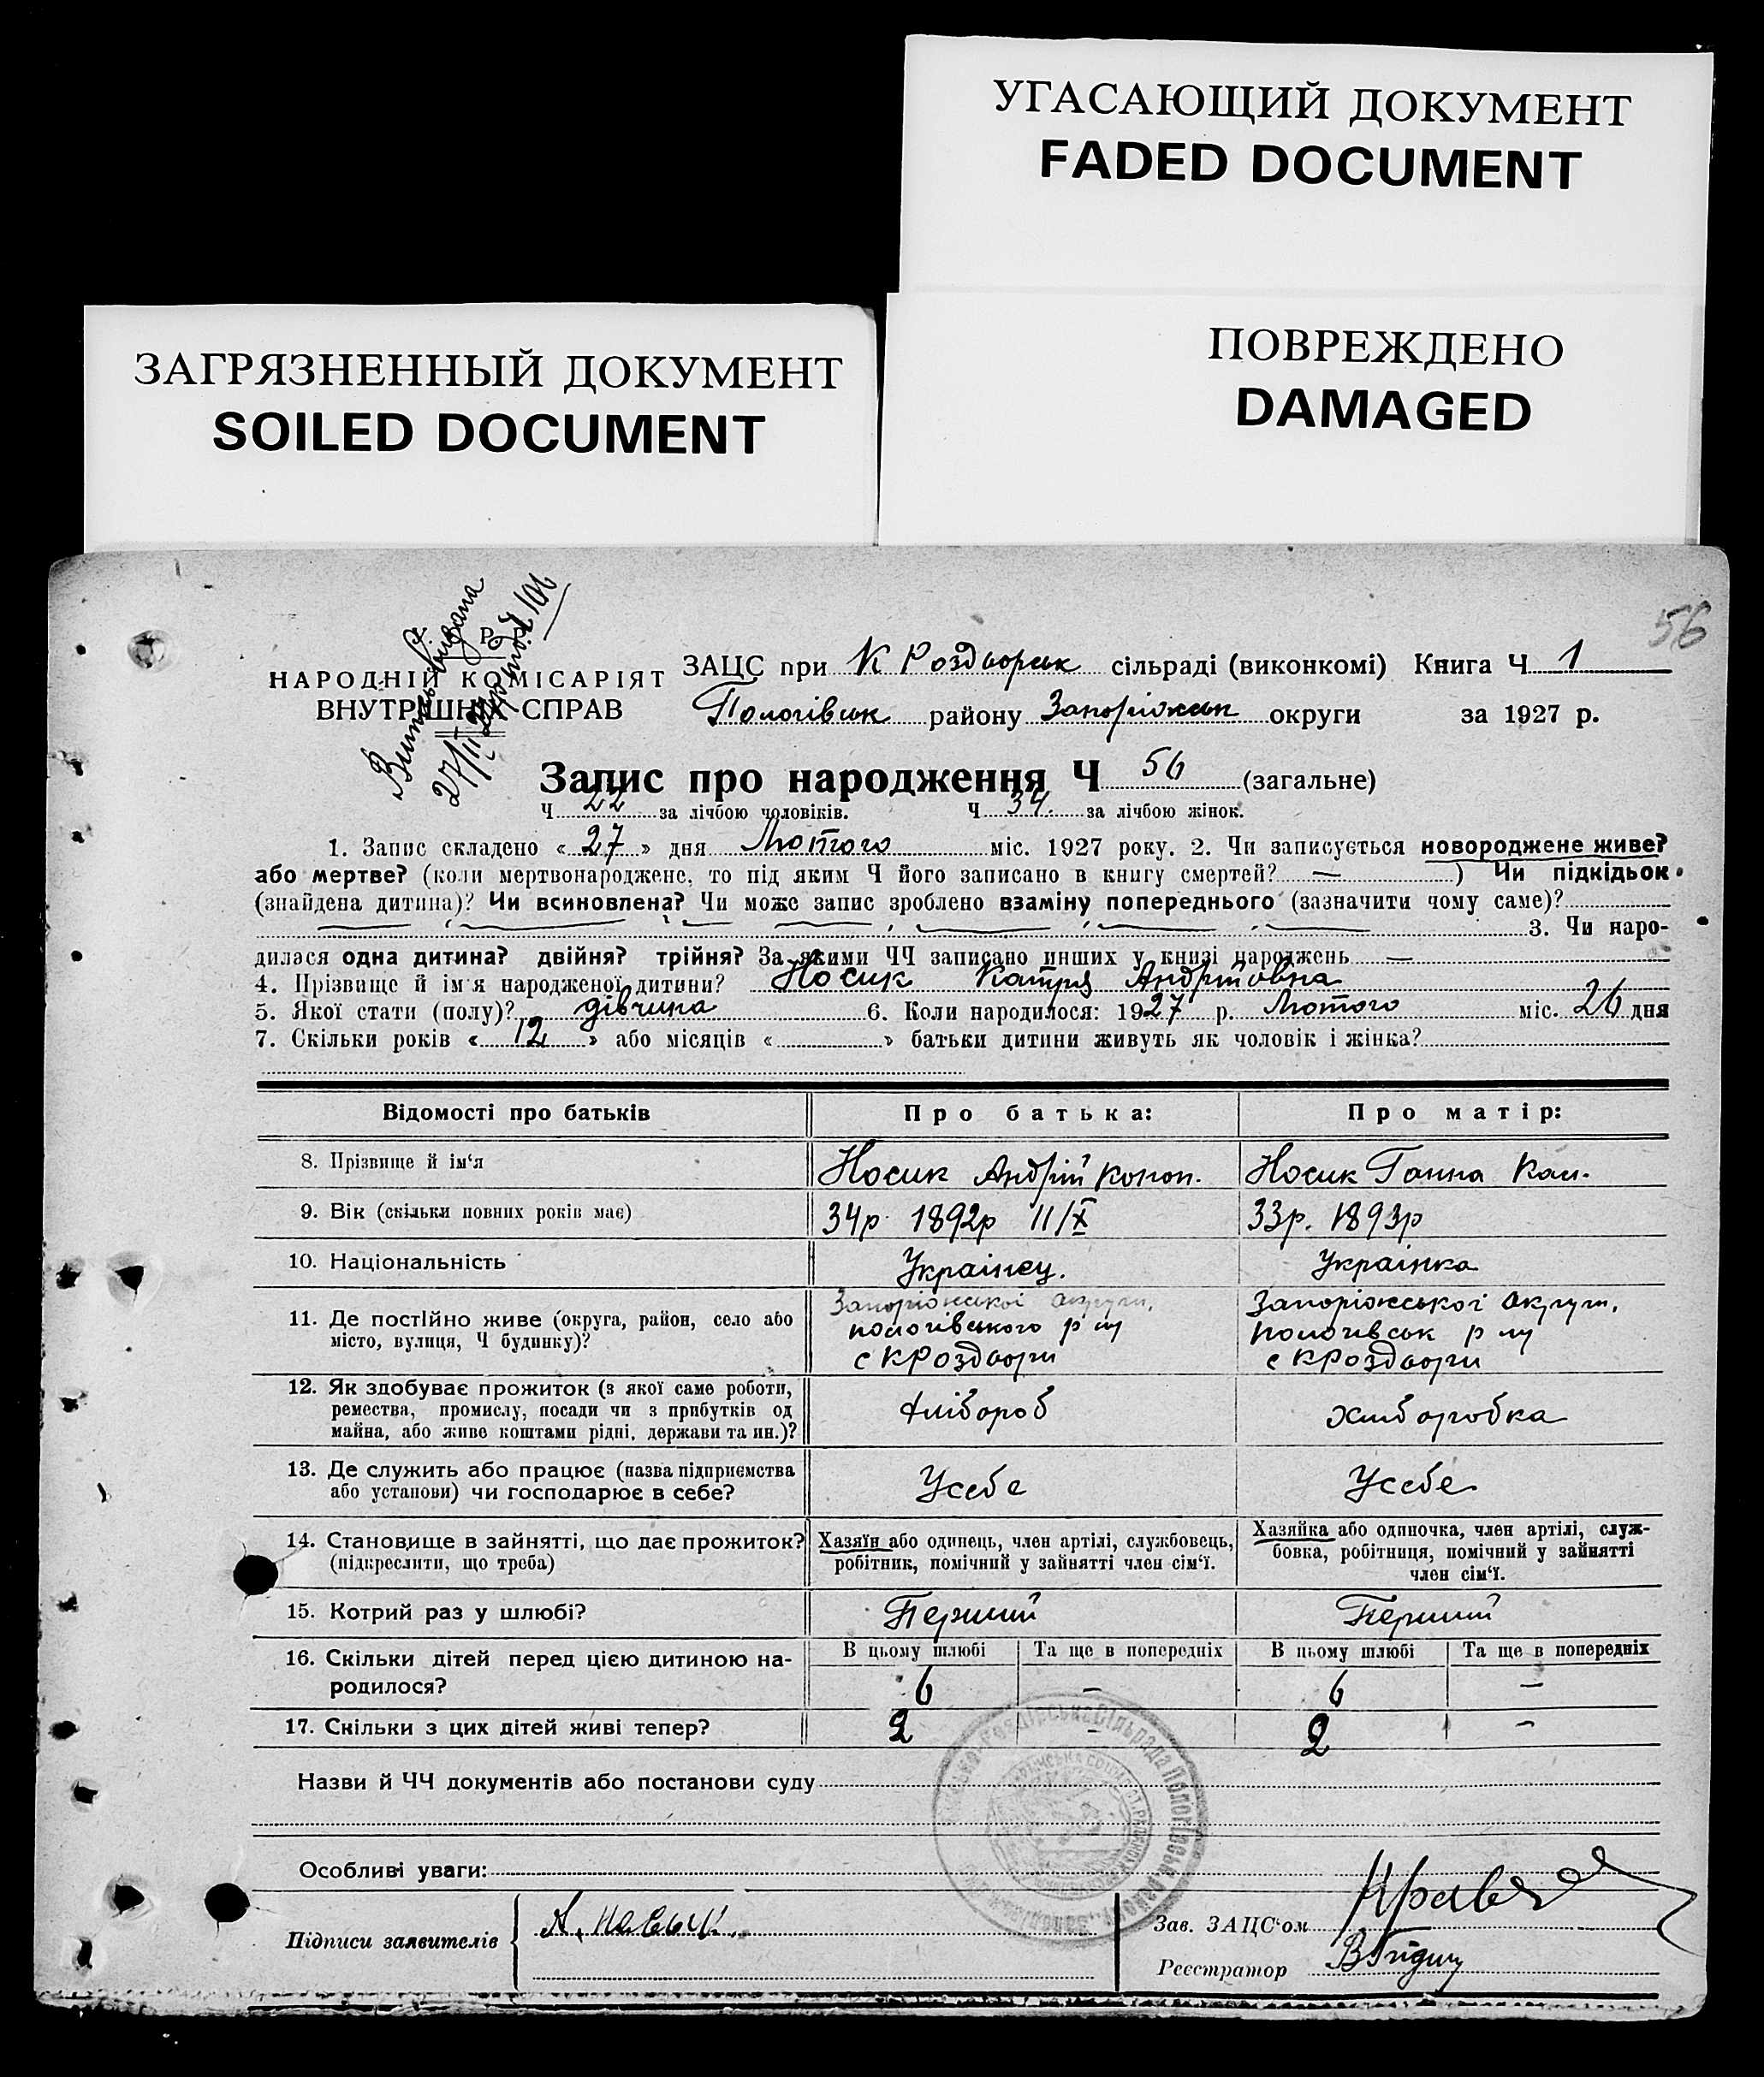 УГАСАЮЩИЙ ДОКУМЕНТ
FADED DOCUMENT
ЗАГРЯЗНЕННЫЙ ДОКУМЕНТ
SOILED DOCUMENT
ПОВРЕЖДЕНО
DAMAGED
56
У. Р.
НАРОДНІЙ КОМІСАРІЯТ
ВНУТРІШНІХ СПРАВ
ЗАЦС при К Роздорськ сільраді (виконкомі) Книга Ч 1
Пологівськ району Запоріжськ округи за 1927 р.
Запис про народження Ч 56 (загальне)
Ч 22 за лічбою чоловіків. Ч 34. за лічбою жінок.
1. Запис складено « 27 » дня Лютого міс. 1927 року. 2. Чи записується новороджене живе?
або мертве? (коли мертвонароджене, то під яким Ч його записано в книгу смертей? — ) Чи підкідьок
(знайдена дитина)? Чи всиновлена? Чи може запис зроблено взаміну попереднього (зазначити чому саме)?
3. Чи наро-
дилася одна дитина? двійня? трійня? За якими ЧЧ записано инших у книзі народжень —
4. Прізвище й ім'я народженої дитини? Носик Катря Андріївна
5. Якої стати (полу)? дівчина 6. Коли народилося: 1927 р. Лютого міс. 26 дня
7. Скільки років « 12 » або місяців « » батьки дитини живуть як чоловік і жінка?
Відомості про батьків Про батька: Про матір:
8. Прізвище й ім'я Носик Андрій Конон. Носик Ганна
9. Вік (скільки повних років має) 34р 1892р 11/X 33р. 1893р
10. Національність Українец. Українка
11. Де постійно живе (округа, район, село або
місто, вулиця, Ч будинку)?
Запоріжської округи,
пологівського р
с КРоздори
Запоріжської округи,
пологівськ р
с КРоздори
12. Як здобуває прожиток (з якої саме роботи,
ремества, промислу, посади чи з прибутків од
майна, або живе коштами рідні, держави та ин.)?
хлібороб хліборобка
13. Де служить або працює (назва підприємства
або установи) чи господарює в себе?
Усебе Усебе
14. Становище в зайнятті, що дає прожиток?
(підкреслити, що треба)
Хазяїн або одинець, член артілі, службовець,
робітник, помічний у зайнятті член сім'ї.
Хазяйка або одиночка, член артілі, служ-
бовка, робітниця, помічний у зайнятті
член сім'ї.
15. Котрий раз у шлюбі? Перший Перший
16. Скільки дітей перед цією дитиною на-
родилося?
В цьому шлюбі Та ще в попередніх В цьому шлюбі Та ще в попередніх
6 — 6 —
17. Скільки з цих дітей живі тепер? 2 - 2 -
Назви й ЧЧ документів або постанови суду
Особливі уваги:
Підписи заявителів
Зав. ЗАЦС'ом
Реєстратор